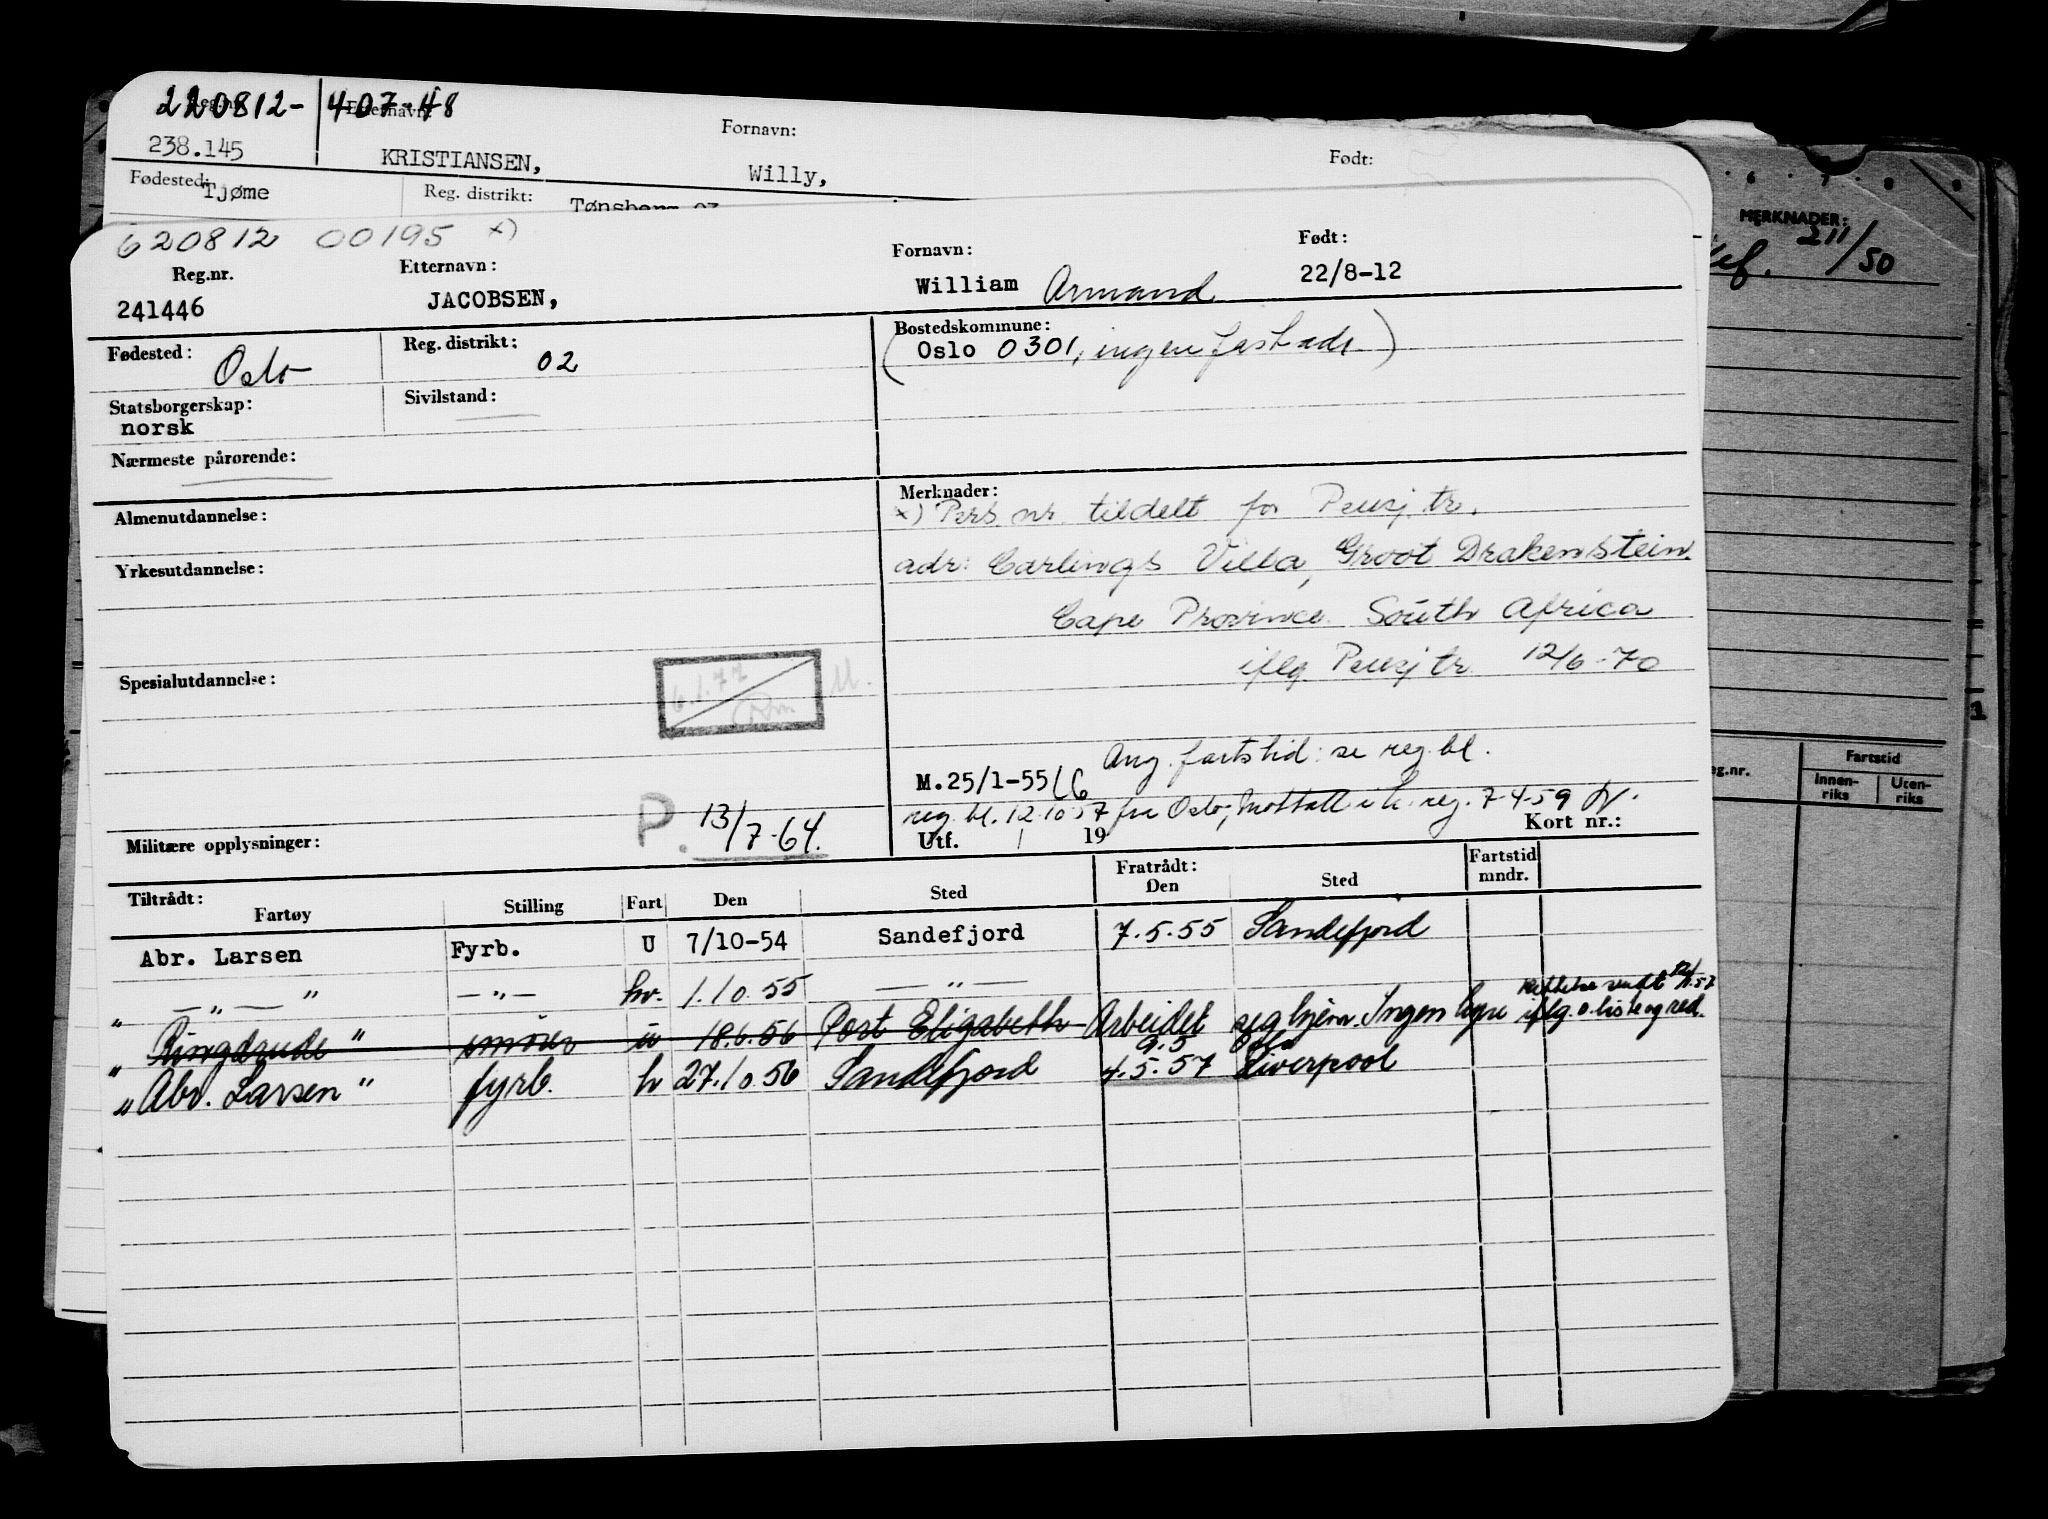 220812- 407-48
Reg.nr. Etternavn: Fornavn: Født:
238.145 KRISTIANSEN, Willy,
Fødested: Tjøme Reg. distrikt: Tønsberg 03
620812 00195 x)
Reg.nr. Etternavn: Fornavn: Født:
241446 JACOBSEN, William Armand 22/8-12
Fødested: Oslo Reg. distrikt: 02 Bostedskommune:
(Oslo 0301, ingen fast adr)
Statsborgerskap: Sivilstand:
norsk
Nærmeste pårørende:
Almenutdannelse: Merknader:
x) Pers. nr. tildelt for Pensj. tr.
Yrkesutdannelse: adr: Carlings Villa, Groot Drakenstein.
Cape Province. South Africa
iflg. Pensj tr 12/6-70
Spesialutdannelse: 6.1.77
Ang. fartstid: se reg. bl.
M.25/1-55
reg. bl. 12.10.57 fra Oslo, Mottatt i h. reg. 7-4-59
P. 13/7-64.
Militære opplysninger: Utf. / 19 Kort nr.:
Tiltrådt: Fratrådt: Fartstid
Fartøy Stilling Fart Den Sted Den Sted mndr.
Abr. Larsen Fyrb. U 7/10-54 Sandefjord 7.5.55 Sandefjord
" — " — " — " — hv. 1.10.55 — " —
" Ringdrude " smører u 18.6.56 Port Elizabeth Arbeidet seg hjem. Ingen hyre iflg. o. liste og red.
9.5
" Abr. Larsen " fyrb. h 27.10.56 Sandefjord 4.5.57 Liverpool
MERKNADER:
211/50
Reg.nr. Fartstid
Innen- riks Uten- riks